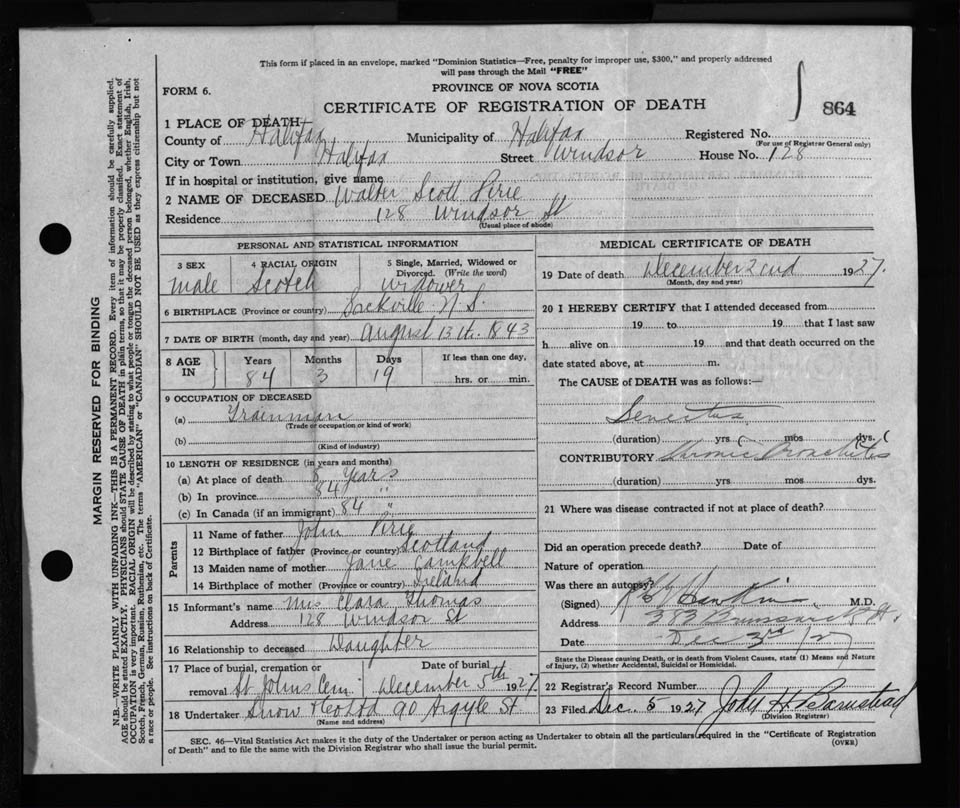 This form if placed in an envelope, marked "Dominion Statistics—Free, penalty for improper use, $300," and properly addressed
will pass through the Mail "FREE"
FORM 6.
PROVINCE OF NOVA SCOTIA
CERTIFICATE OF REGISTRATION OF DEATH
864
1 PLACE OF DEATH
County of Halifax Municipality of Halifax Registered No.
(For use of Registrar General only)
City or Town Halifax Street Windsor House No. 128
If in hospital or institution, give name
2 NAME OF DECEASED Walter Scott Pirie
Residence 128 Windsor St
(Usual place of abode)
PERSONAL AND STATISTICAL INFORMATION
3 SEX 4 RACIAL ORIGIN 5 Single, Married, Widowed or
Divorced. (Write the word)
male Scotch widower
6 BIRTHPLACE (Province or country) Sackville N.S.
7 DATE OF BIRTH (month, day and year) August 13th. 1843
8 AGE IN Years Months Days If less than one day,
84 3 19 hrs. or min.
9 OCCUPATION OF DECEASED
(a) Trainman
(Trade or occupation or kind of work)
(b)
(Kind of industry)
10 LENGTH OF RESIDENCE (in years and months)
(a) At place of death Years
(b) In province 84 "
(c) In Canada (if an immigrant) 84 "
Parents
11 Name of father John Pirie
12 Birthplace of father (Province or country) Scotland
13 Maiden name of mother Jane Campbell
14 Birthplace of mother (Province or country) Ireland
15 Informant's name Mrs Clara Thomas
Address 128 Windsor St
16 Relationship to deceased Daughter
17 Place of burial, cremation or Date of burial
removal St Johns Cem December 5th 1927
18 Undertaker Snow & Co Ltd 90 Argyle St
(Name and address)
MEDICAL CERTIFICATE OF DEATH
19 Date of death December 2nd 1927.
(Month, day and year)
20 I HEREBY CERTIFY that I attended deceased from
19 to 19 that I last saw
h alive on 19 and that death occurred on the
date stated above, at m.
The CAUSE of DEATH was as follows:—
Senectus
(duration) yrs mos dys.
CONTRIBUTORY Chronic Bronchitis
(duration) yrs mos dys.
21 Where was disease contracted if not at place of death?
Did an operation precede death? Date of
Nature of operation
Was there an autopsy?
(Signed) Hawkins M.D.
Address 383 Brunswick St.
Date Dec 3rd /27
State the Disease causing Death, or in death from Violent Causes, state (1) Means and Nature
of Injury, (2) whether Accidental, Suicidal or Homicidal.
22 Registrar's Record Number
23 Filed Dec. 5 1927 John H Barnstead
(Division Registrar)
SEC. 46—Vital Statistics Act makes it the duty of the Undertaker or person acting as Undertaker to obtain all the particulars required in the "Certificate of Registration
of Death" and to file the same with the Division Registrar who shall issue the burial permit.
(OVER)
MARGIN RESERVED FOR BINDING
N.B.—WRITE PLAINLY WITH UNFADING INK—THIS IS A PERMANENT RECORD. Every item of information should be carefully supplied.
AGE should be stated EXACTLY. PHYSICIANS should STATE CAUSE OF DEATH in plain terms, so that it may be properly classified. Exact statement of
OCCUPATION is very important. RACIAL ORIGIN will be described by stating to what people or tongue the deceased person belonged, whether English, Irish,
Scotch, French, German, Russian, Ruthenian, etc. The terms "AMERICAN" or "CANADIAN" SHOULD NOT BE USED as they express citizenship but not
a race or people. See instructions on back of Certificate.